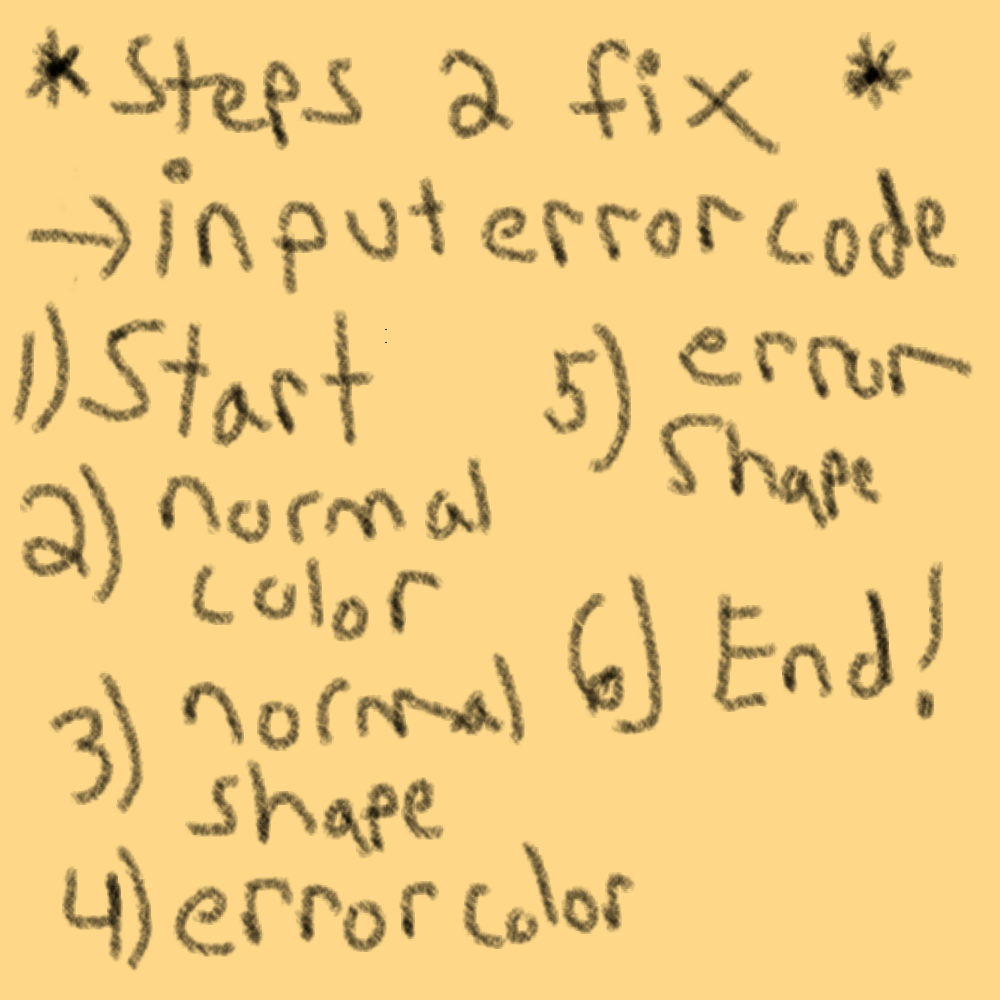 *Steps 2 fix *
→input error code
1) Start
2) normal
color
3) normal
shape
4) error color
5) error
shape
6) End!